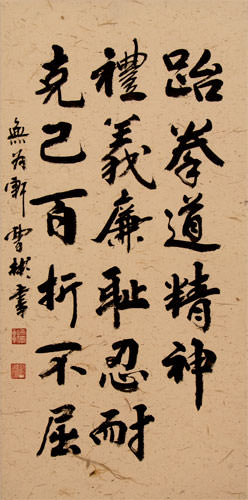 跆拳道精神
禮義廉耻忍耐
克己百折不屈
無為軒曹彬書